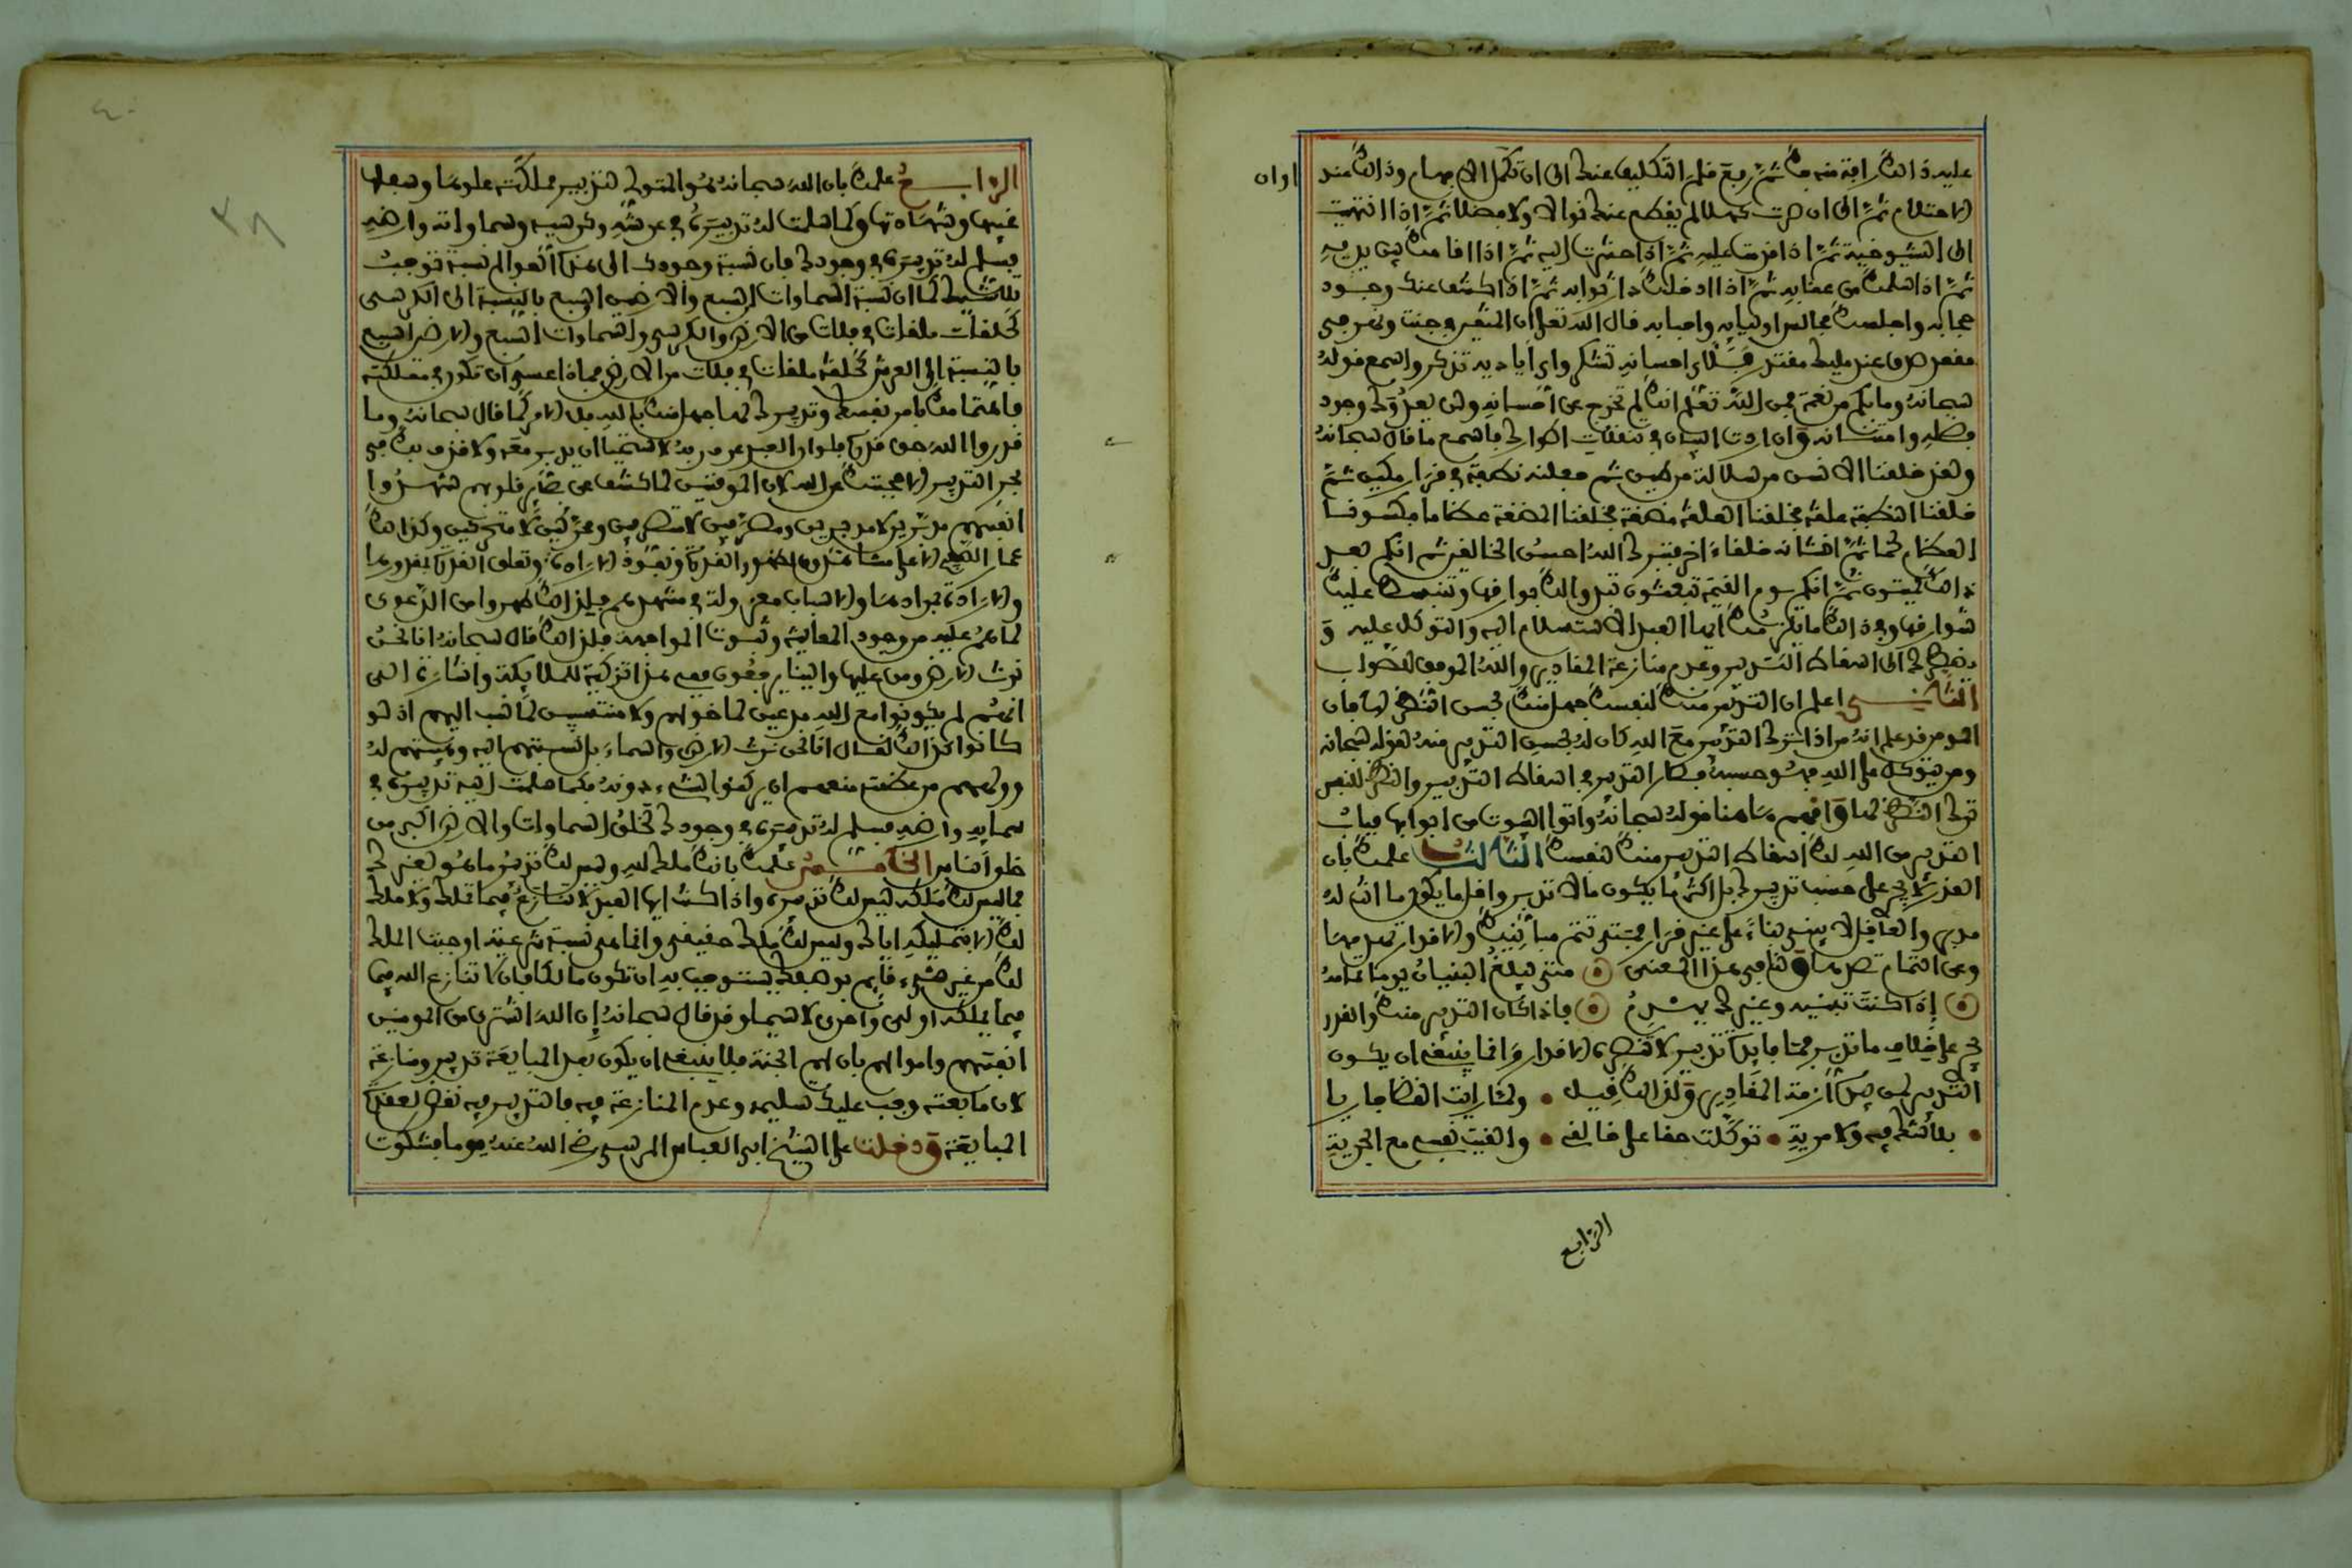 عليه ذلك رافة منه بك ثم رفع قلم التكليف عنك الى ان تكمل الافهام وذلك عند اوان
الاحتلام ثم الى ان صرت كهلا لم يقطع عنك نوالا ولا فضلا ثم اذا انتهيت
الى الشيوخية ثم اذا قدمت عليه ثم اذا حشرت اليه ثم اذا اقامك بين يديه
ثم اذا سلمك من عقابه ثم اذا ادخلك دار ثوابه ثم اذا كشف عنك وجود
حجابه واجلسك مجالس اوليايه واحبابه قال الله تعلى ان المتقين في جنت ونهر في
مقعد صدق عند مليك مقتدر فلاي احسانه تشكر واي اياديه تذكر واسمع قوله
سبحانه وما بكم من نعمة فمن الله تعلم انك لم تخرج عن احسانه ولن يعدوك وجود
فضله وامتنانه وان اردت البيان في تنقلات اطوارك فاسمع ما قال سبحانه
ولقد خلقنا الانسن من سلالة من طين ثم جعلنه نطفة في قرار مكين ثم
خلقنا النطفة علقة فخلقنا العلقة مضغة فخلقنا المضغة عظاما فكسونا
العظام لحما ثم انشانه خلقا اخر فتبرك الله احسن الخالقين ثم انكم بعد
ذلك لميتون ثم انكم يوم القيمة تبعثون تبدو لك بوارقها وتنبسط عليك
شوارقها وفي ذلك ما يلزمك ايها العبد الاستسلام اليه والتوكل عليه و
يضطرك الى اسقاط التدبير وعدم منازعة المقادير والله الموفق للصواب
الثاني اعلم ان التدبير منك لنفسك جهل منك بحسن النظر لها فان
المومن قد علم انه من اذا ترك التدبير مع الله كان له بحسن التدبير منه لقوله سبحانه
ومن يتوكل على الله فهو حسبه فصار التدبير في اسقاط التدبير والنظر للنفس
ترك النظر لها وافهم هاهنا قوله سبحانه واتوا البيوت من ابوابها فباب
التدبير من الله لك اسقاط التدبير منك لنفسك الثالث علمك بان
القدر لا يجري على حسب تدبيرك بل اكثر ما يكون ما لا تدبر واقل ما يكون ما انت له
مدبر والعاقل لا يبني بناء على غير قرار فمتى تتم مبانيك والاقدار تهدمها
وعن التمام تصدها وقيل في هذا المعنى متى يبلغ البنيان يوما تمامه
إذا كنت تبنيه وغيرك يهدم فاذا كان التدبير منك والقدر
يجري على خلاف ما تدبر فما فايدة تدبير لا تنصره الاقدار وانما ينبغي ان يكون
التدبير لمن بيده ازمة المقادير ولذلك قيل ولما رايت القضا جاريا
بلا شك فيه ولا مرية توكلت حقا على خالقي والقيت نفسي مع الجرية
الرابع
الرابع علمك بان الله سبحانه هو المتولي لتدبير مملكته علوها وسفلها
غيبها وشهادتها وكما سلمت له تدبيره في عرشه وكرسيه وسماواته وارضه
فسلم له تدبيره في وجودك فان نسبة وجودك الى هذه العوالم نسبة توجب
تلاشيك كما ان نسبة السماوات السبع والارضين السبع بالنسبة الى الكرسي
كحلقة ملقاة في فلاة من الارض والكرسي والسماوات السبع والارض السبع
بالنسبة الى العرش كحلقة ملقاة في فلاة من الارض فماذا عسى ان تكون في مملكته
فاهتمامك بامر نفسك وتدبيرك لها جهل منك بالله بل الامر كما قال سبحانه وما
قدروا الله حق قدره فلو ان العبد عرف ربه لاستحيا ان يدبر معه ولا قذف بك في
بحر التدبير الا حجبتك عن الله لان الموقنين لما كشف عن بصائر قلوبهم شهدوا
انفسهم مدبرين لا مدبرين ومصرفين لا متصرفين ومحركين لا متحركين وكذلك
عمار الملا الاعلى مشاهدون لظهور القدرة ونفوذ الارادة وتعلق القدرة بمقدورها
والارادة بمرادها والاسباب معزولة في مشهدهم فلذلك طهروا من الدعوى
لما هم عليه من وجود المعاينة وثبوت المواجهة فلذلك قال سبحانه انا نحن
نرث الارض ومن عليها والينا يرجعون ففي هذا تزكية للملايكة واشارة الى
انهم لم يكونوا مع الله مدعين لما خولهم ولا منتسبين لما نسب اليهم اذ لو
كانوا كذلك لقال انا نحن نرث الارض والسماء بل نسبتهم اليه وهيبتهم له
وولههم من عظمته منعهم ان يركنوا لشيء دونه فكما سلمت لله تدبيره في
سمايه وارضه فسلم له تدبيره في وجودك لخلق السماوات والارض اكبر من
خلق الناس الخامس علمك بانك ملك لله وليس لك تدبير ما هو لغيرك
فما ليس لك ملكه ليس لك تدبيره واذا كنت ايها العبد لا تنازع فيما تملك ولا ملك
لك الا بتمليكه اياك وليس لك ملك حقيقي وانما هي نسبة شرعية اوجبت الملك
لك من غير شيء قايم بوصفك تستوجب به ان تكون مالكا فان لا تنازع الله فيما
فيما يملكه اولى واحرى لا سيما وقد قال سبحانه إن الله اشترى من المومنين
انفسهم واموالهم بان لهم الجنة فلا ينبغي ان يكون بعد المبايعة تدبير ومنازعة
لان ما بعته وجب عليك تسليمه وعدم المنازعة فيه فالتدبير فيه نقض لعقد
المبايعة ودخلت على الشيخ ابي العباس المرسي رضي الله عنه يوما فشكوت